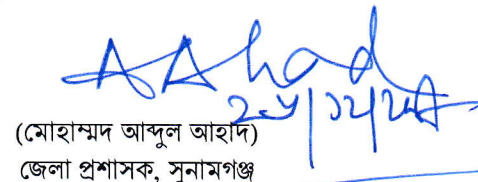 AAhad
(মোহাম্মদ আব্দুল আহাদ)
জেলা প্রশাসক, সুনামগঞ্জ